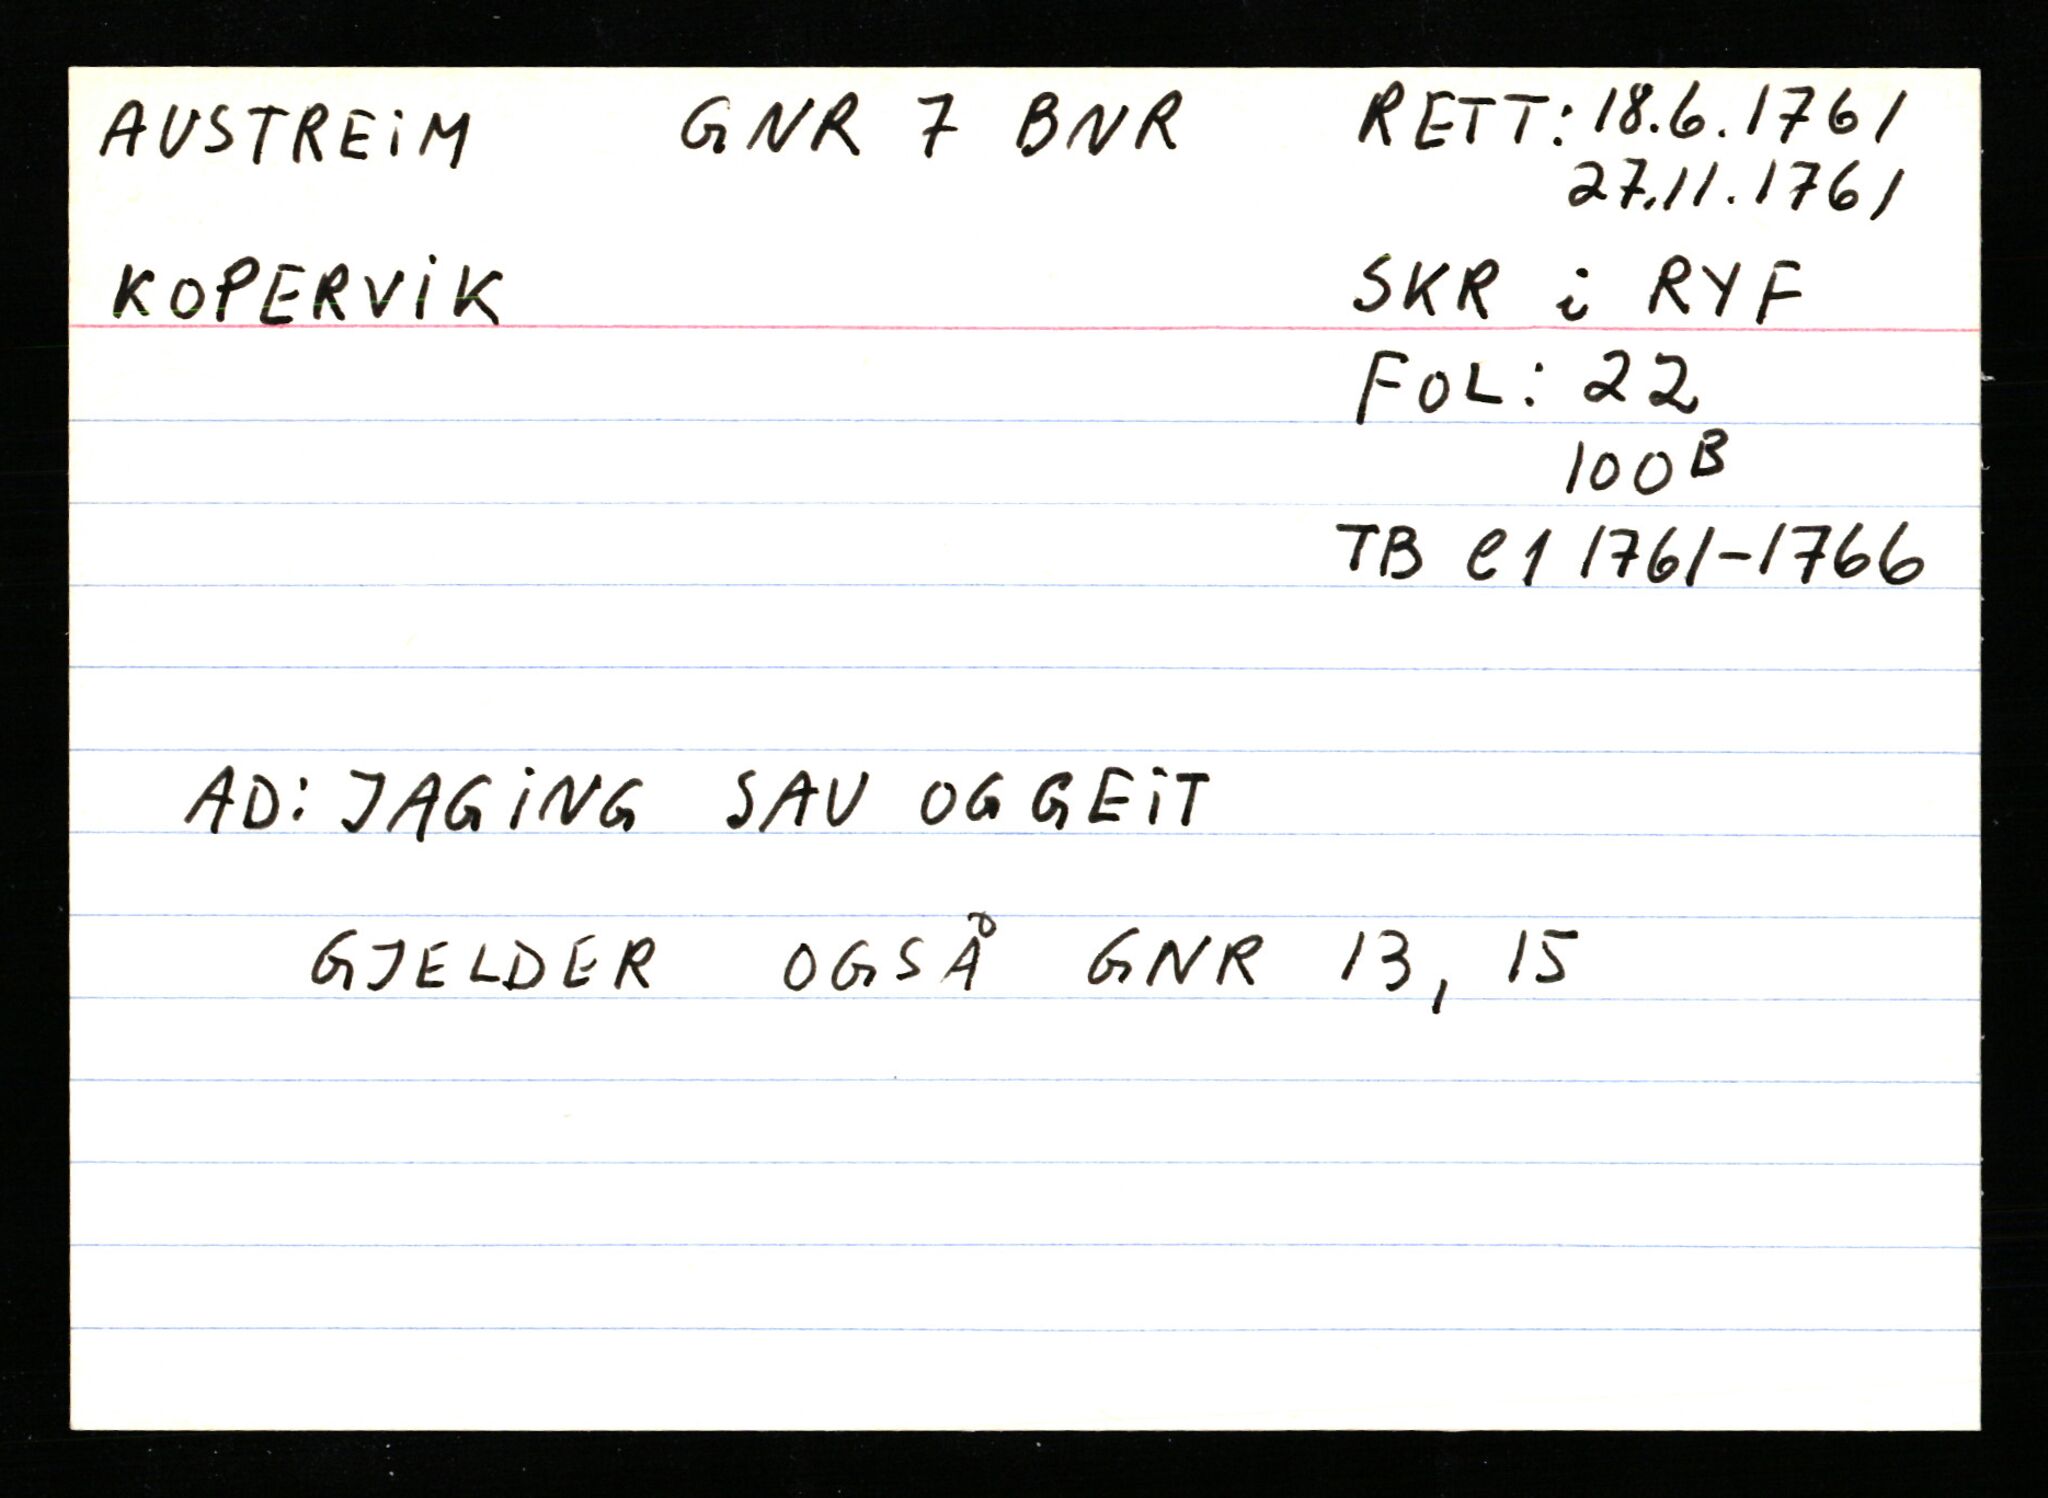 AUSTREiM GNR 7 BNR RETT: 18.6.1761
27.11.1761
KOPERViK SKR i RYF
FOL: 22
100B
TB e1 1761-1766
AD: JAGiNG SAU OG GEiT
GJELDER OGSÅ GNR 13, 15